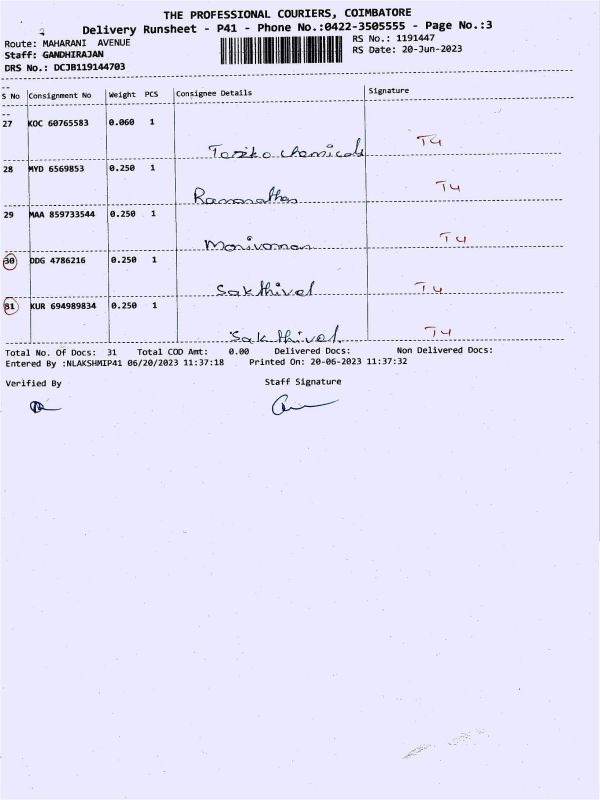 THE PROFESSIONAL COURIERS, COIMBATORE
Delivery Runsheet - P41 - Phone No.:0422-3505555 - Page No.:3
Route: MAHARANI AVENUE
RS No.: 1191447
Staff: GANDHIRAJAN
RS Date: 20-Jun-2023
DRS No.: DCJB119144703
S No Consignment No Weight PCS Consignee Details Signature
27 KOC 60765583 0.060 1
chemicals T4
28 MYD 6569853 0.250 1
Ramanathan T4
29 MAA 859733544 0.250 1
Manivannan T4
30 DDG 4786216 0.250 1
Sakthivel T4
31 KUR 694989834 0.250 1
Sakthivel. T4
Total No. Of Docs: 31 Total COD Amt: 0.00 Delivered Docs: Non Delivered Docs:
Entered By :NLAKSHMIP41 06/20/2023 11:37:18 Printed On: 20-06-2023 11:37:32
Verified By Staff Signature